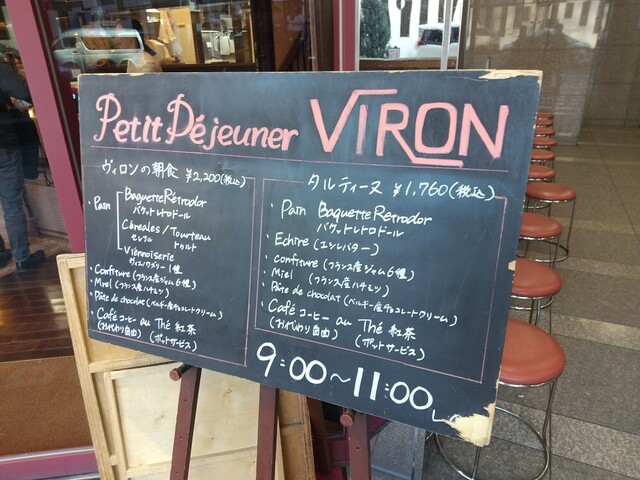 Petit Déjeuner VIRON
ヴィロンの朝食 ¥2,200(税込)
・Pain
Baguette Rétrodor
バゲットレトロドール
Céréales / Tourteau
セレアル トゥルト
Viennoiserie
ヴィエノワズリー1種
・Confiture (フランス産ジャム6種)
・Miel (フランス産ハチミツ)
・Pâte de chocolat (ベルギー産チョコレートクリーム)
・Café コーヒー au Thé 紅茶
(おかわり自由) (ポットサービス)
タルティーヌ ¥1,760(税込)
・Pain Baguette Retrodor
バゲットレトロドール
・Echire (エシレバター)
・confiture (フランス産ジャム6種)
・Miel (フランス産ハチミツ)
・Pâte de chocolat (ベルギー産チョコレートクリーム)
・Café コーヒー au Thé 紅茶
(おかわり自由) (ポットサービス)
9:00～11:00